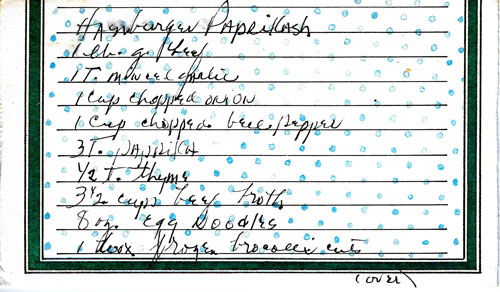 Hamburger Paprikash
1 lb. g. beef
1 T. minced garlic
1 cup chopped onion
1 cup chopped bell pepper
3 T. paprika
1/2 t. thyme
3 1/2 cups beef broth
8 oz. egg noodles
1 box frozen brocolli cuts
(over)